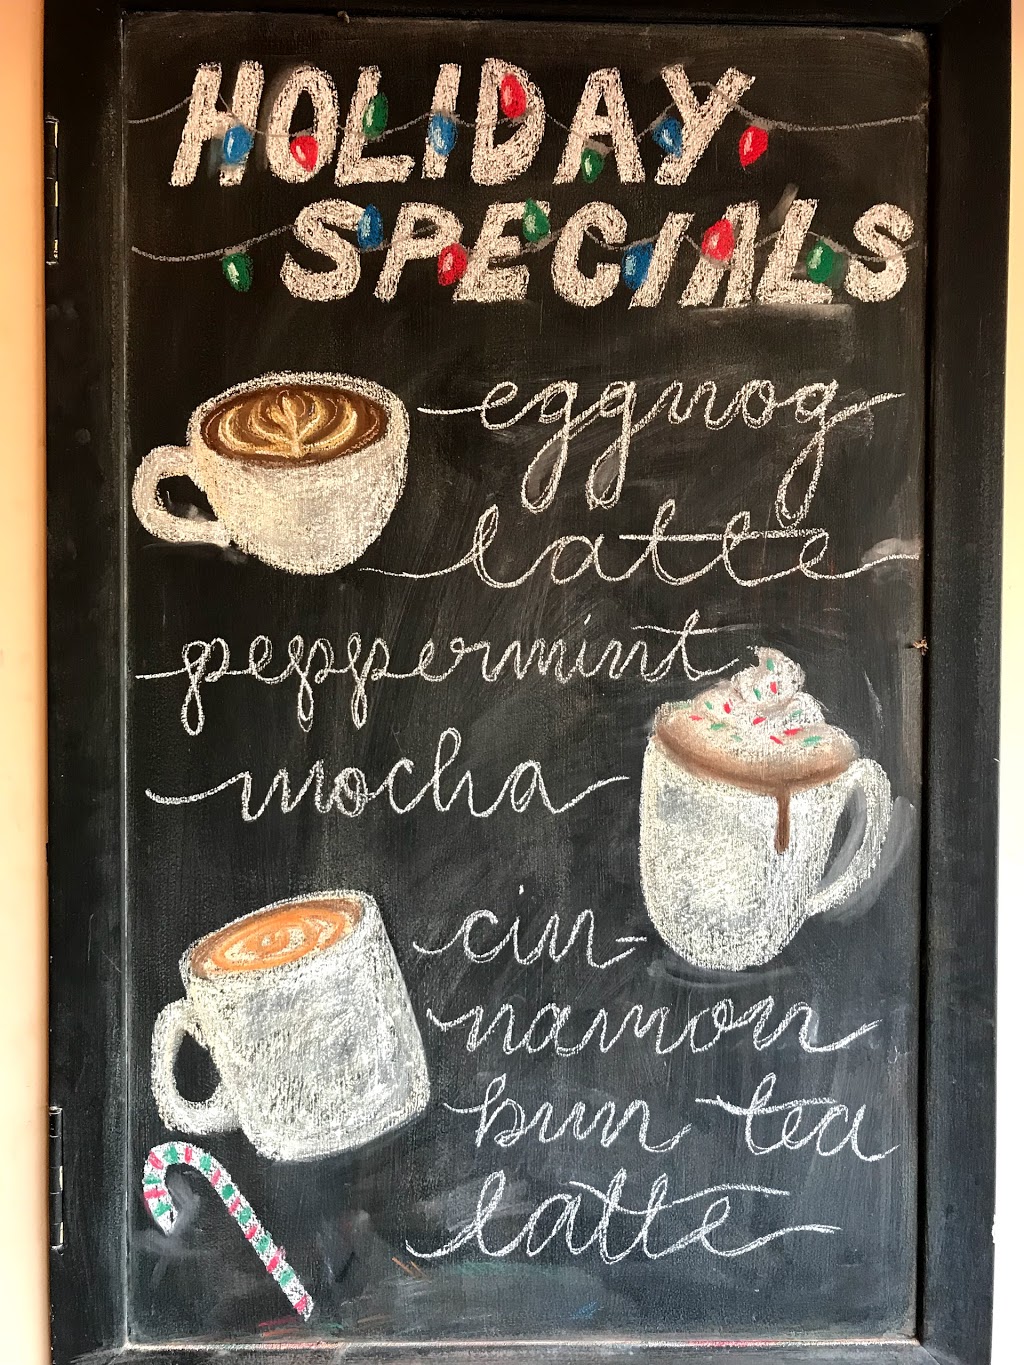 HOLIDAY
SPECIALS
eggnog
latte
peppermint
mocha
cin-
namon
bun tea
latte